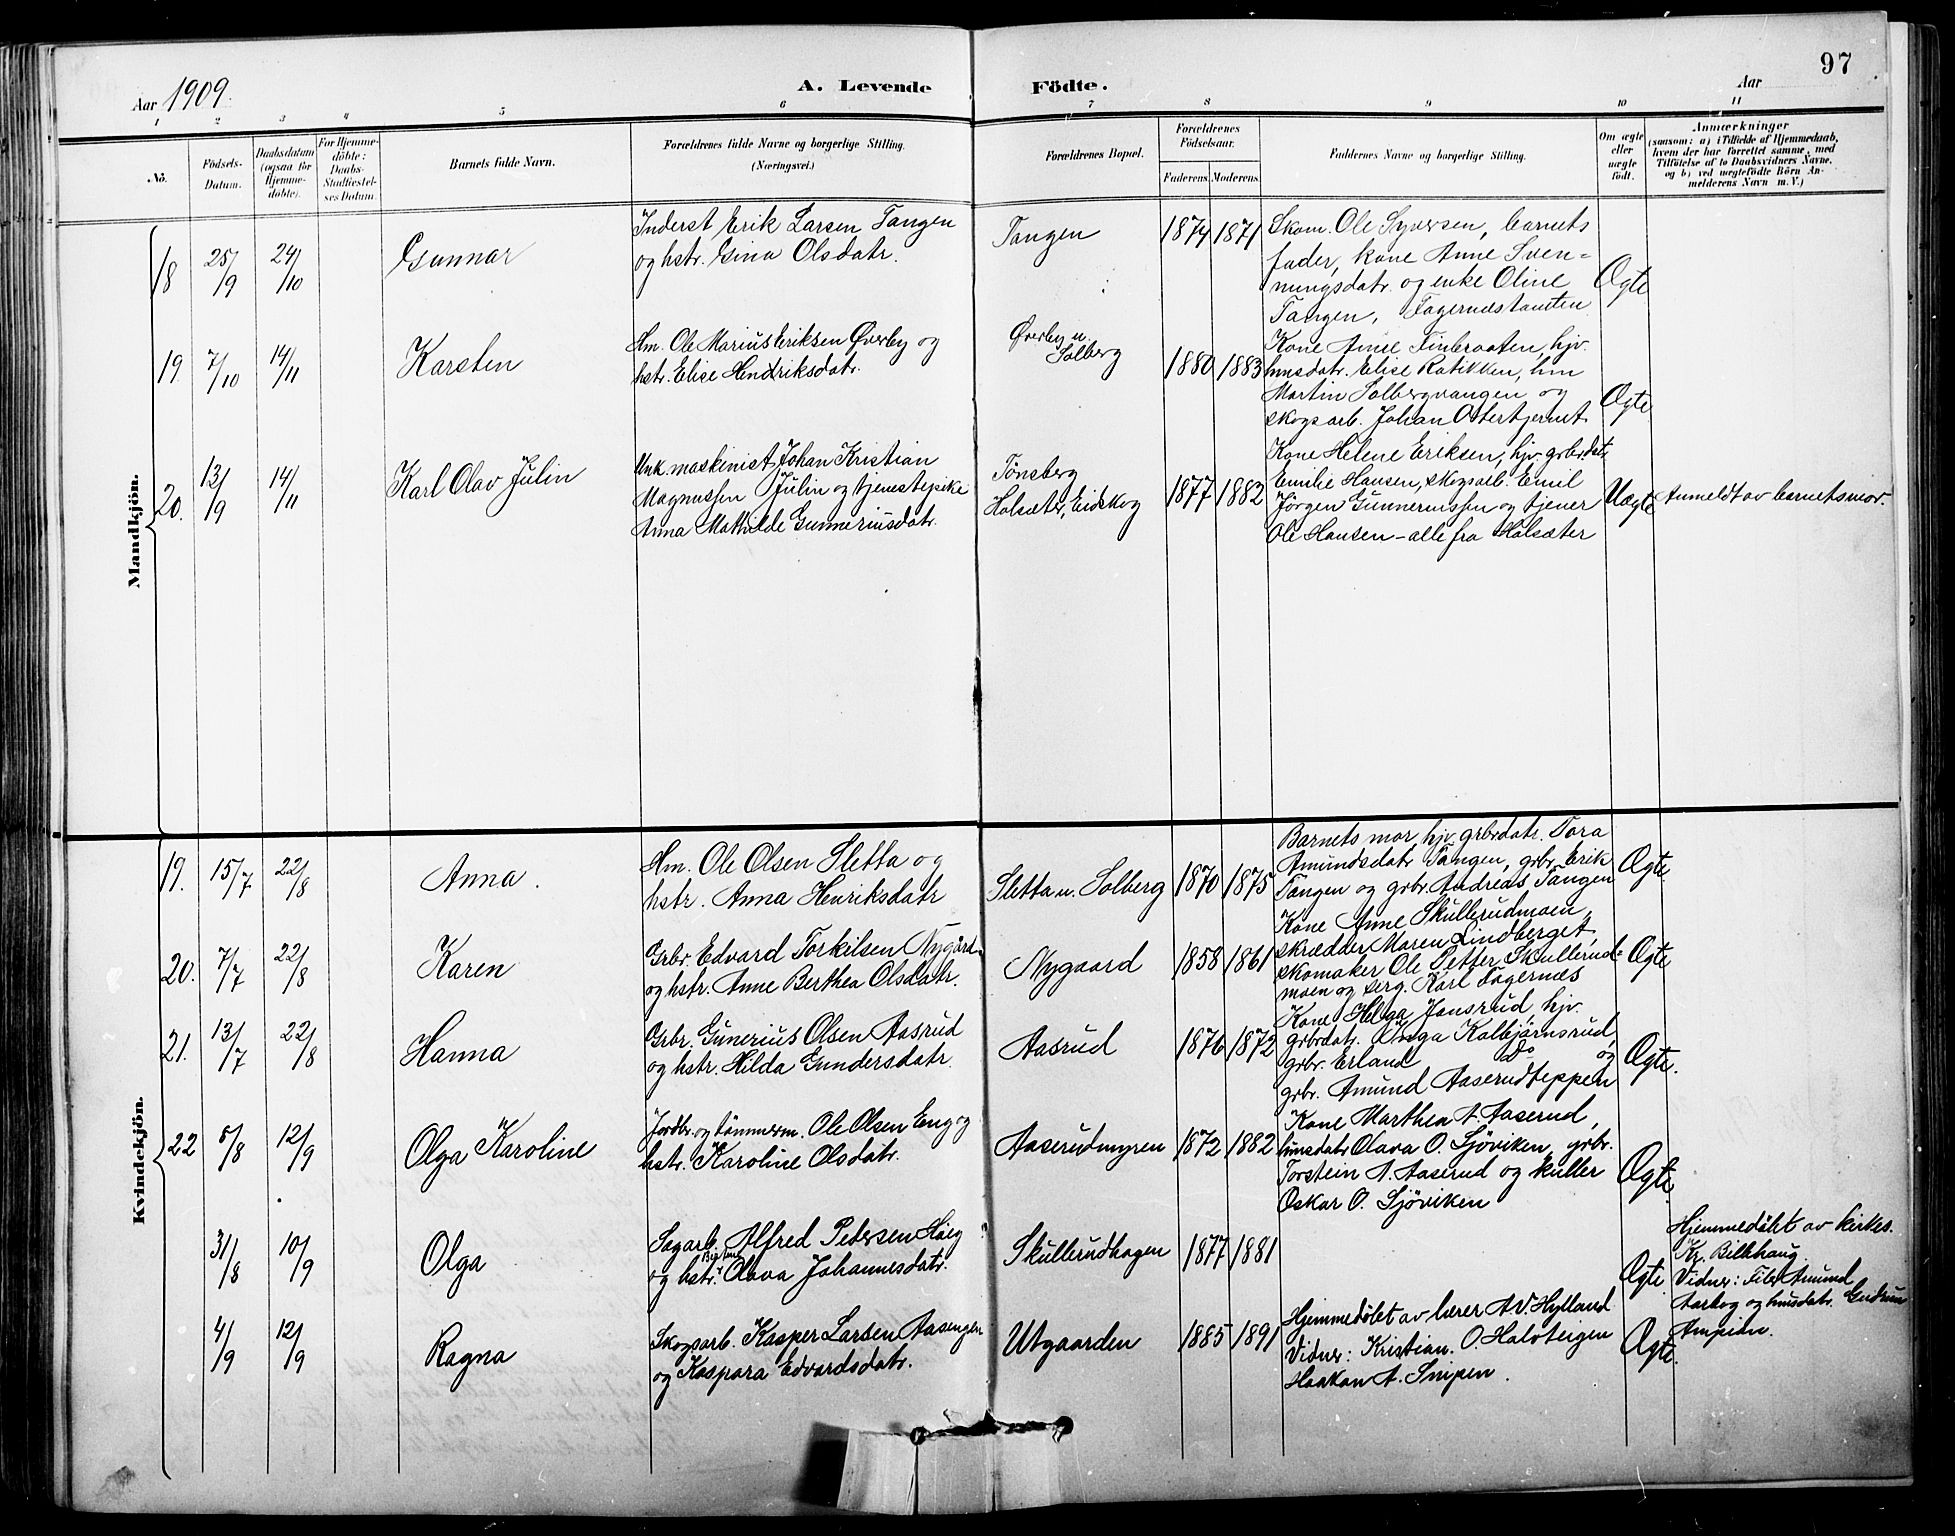 97
Aar 1909.
A. Levende Födte.
Aar
1 2 3 4 5 6 7 8 9 10 11
No.
Födsels-
Datum.
Daabsdatum
(ogsaa for
Hjemme-
döbte).
For Hjemme-
döbte:
Daabs-
Stadfæstel-
ses Datum.
Barnets fulde Navn.
Forældrenes fulde Navne og borgerlige Stilling.
(Næringsvei.)
Forældrenes Bopæl.
Forældrenes
Födselsaar.
Faderens. Moderens.
Faddernes Navne og borgerlige Stilling.
Om ægte
eller
uægte
födt.
Anmærkninger
(saasom: a) i Tilfælde af Hjemmedaab,
hvem der har forrettet samme, med
Tilföielse af to Daabsvidners Navne,
og b) ved uægtefödte Börn An-
melderens Navn m. V.)
Mandkjön.
18 25/9 24/10
Gunnar
Inderst Erik Larsen Tangen
og hstr. Gina Olsdatr.
Tangen
1874 1871
Skom. Ole Syversen, barnets
fader, kone Anne Sven=
nungsdatr. og enke Oline
Tangen, Fagernæstomten
Ægte
19. 7/10 14/11
Karsten
Hm. Ole Marius Eriksen Øverby og
hstr. Elise Hendriksdatr.
Øverby u.
Solberg
1880 1883
Kone Anne Finbraaten, hjv.
husdatr. Elise Ratikken, hm
Martin Solbergvangen og
skogsarb. Johan Ottertjernet
Ægte
20. 13/9 14/11
Karl Olav Julin
Unk. maskinist Johan Kristian
Magnussen Julin og tjenestepike
Anna Mathilde Gunneriusdatr.
Tönsberg
Holsæter, Eidskog
1877 1882
Kone Helene Eriksen, hjv. grbrdatr.
Emilie Hansen, skogsarb. Emil
Jörgen Gunneriussen og tjener
Ole Hansen – alle fra Holsæter
Uægte
Anmeldt av barnets mor.
Kvindekjön.
19. 15/7 22/8
Anna.
Hm. Ole Olsen Sletta og
hstr. Anna Henriksdatr
Sletta u. Solberg
1870 1875
Barnets mor, hjv. grbrdatr. Tora
Amundsdatr Tangen, grbr. Erik
Tangen og grbr. Andreas Tangen
Ægte
20. 7/7 22/8
Karen
Grbr. Edvard Torkilsen Nygård
og hstr. Anne Berthea Olsdatr.
Nygaard
1858 1861
Kone Anne Skullerudmoen,
skrædder Maren Lindberget,
skomaker Ole Petter Skullerud=
moen og serg. Karl Fagernæs
Ægte
21. 13/7 22/8
Hanna
Grbr. Gunerius Olsen Aasrud
og hstr. Hilda Gundersdatr.
Aasrud
1876 1872
Kone Helga Jonsrud, hjv.
grbrdatr. Inga Kolbjörnsrud,
grbr. Erland Do og
grbr. Amund Aaserudteppen
Ægte.
22 5/8 12/9
Olga Karoline
Jordbr. og tömmerm. Ole Olsen Eng og
hstr. Karoline Olsdatr.
Aaserudmyren
1872 1882
Kone Marthea A. Aaserud,
husdatr Olava O. Sjöviken, grbr.
Torstein A. Aaserud og kuller
Oskar O. Sjöviken
Ægte.
31/8 10/9
Olga
Sagarb. Alfred Pedersen Höieg
og hstr. Olava Johannesdatr.
Skullerudhagen
1877 1881
Ægte.
Hjemmedöbt av kirkes.
Kr. Billhaug.
Vidner: Filer Amund
Aarkog og husdatr. Gudrun
Ampidn.
4/9 12/9
Ragna
Skogsarb. Kasper Larsen Aasengen
og Kaspara Edvardsdatr.
Utgaarden
1885 1891
Hjemmedöbt av lærer A V. Hylland
Vidner: Kristian. O. Haloteigen
Haakon A. Snipen.
Ægte.